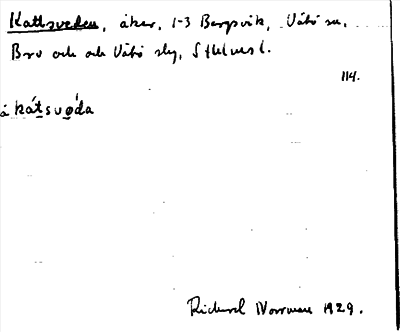 Kattsveden, åker, 1-3 Bergsvik, Vätö sn,
Bro och Vätö slg, Sthlms l.
114.
å kátsvǿda
Richard Norrman 1929.